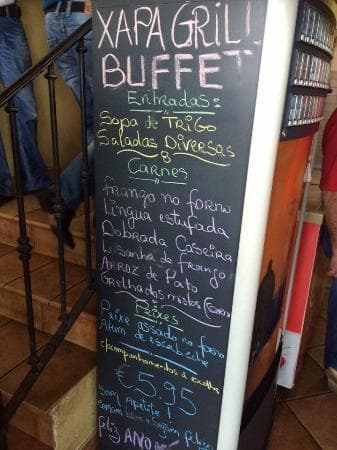 XAPA GRILL
BUFFET
Entradas:
Sopa de Trigo
Saladas Diversas
&
Carnes
Frango no forno
Língua estufada
Dobrada Caseira
Lasanha de frango
Arroz de Pato
Grelhados mistos
Peixes
Peixe assado no forno
Atum de escabeche
acompanhamentos à escolha
€5.95
Bom Apetite!